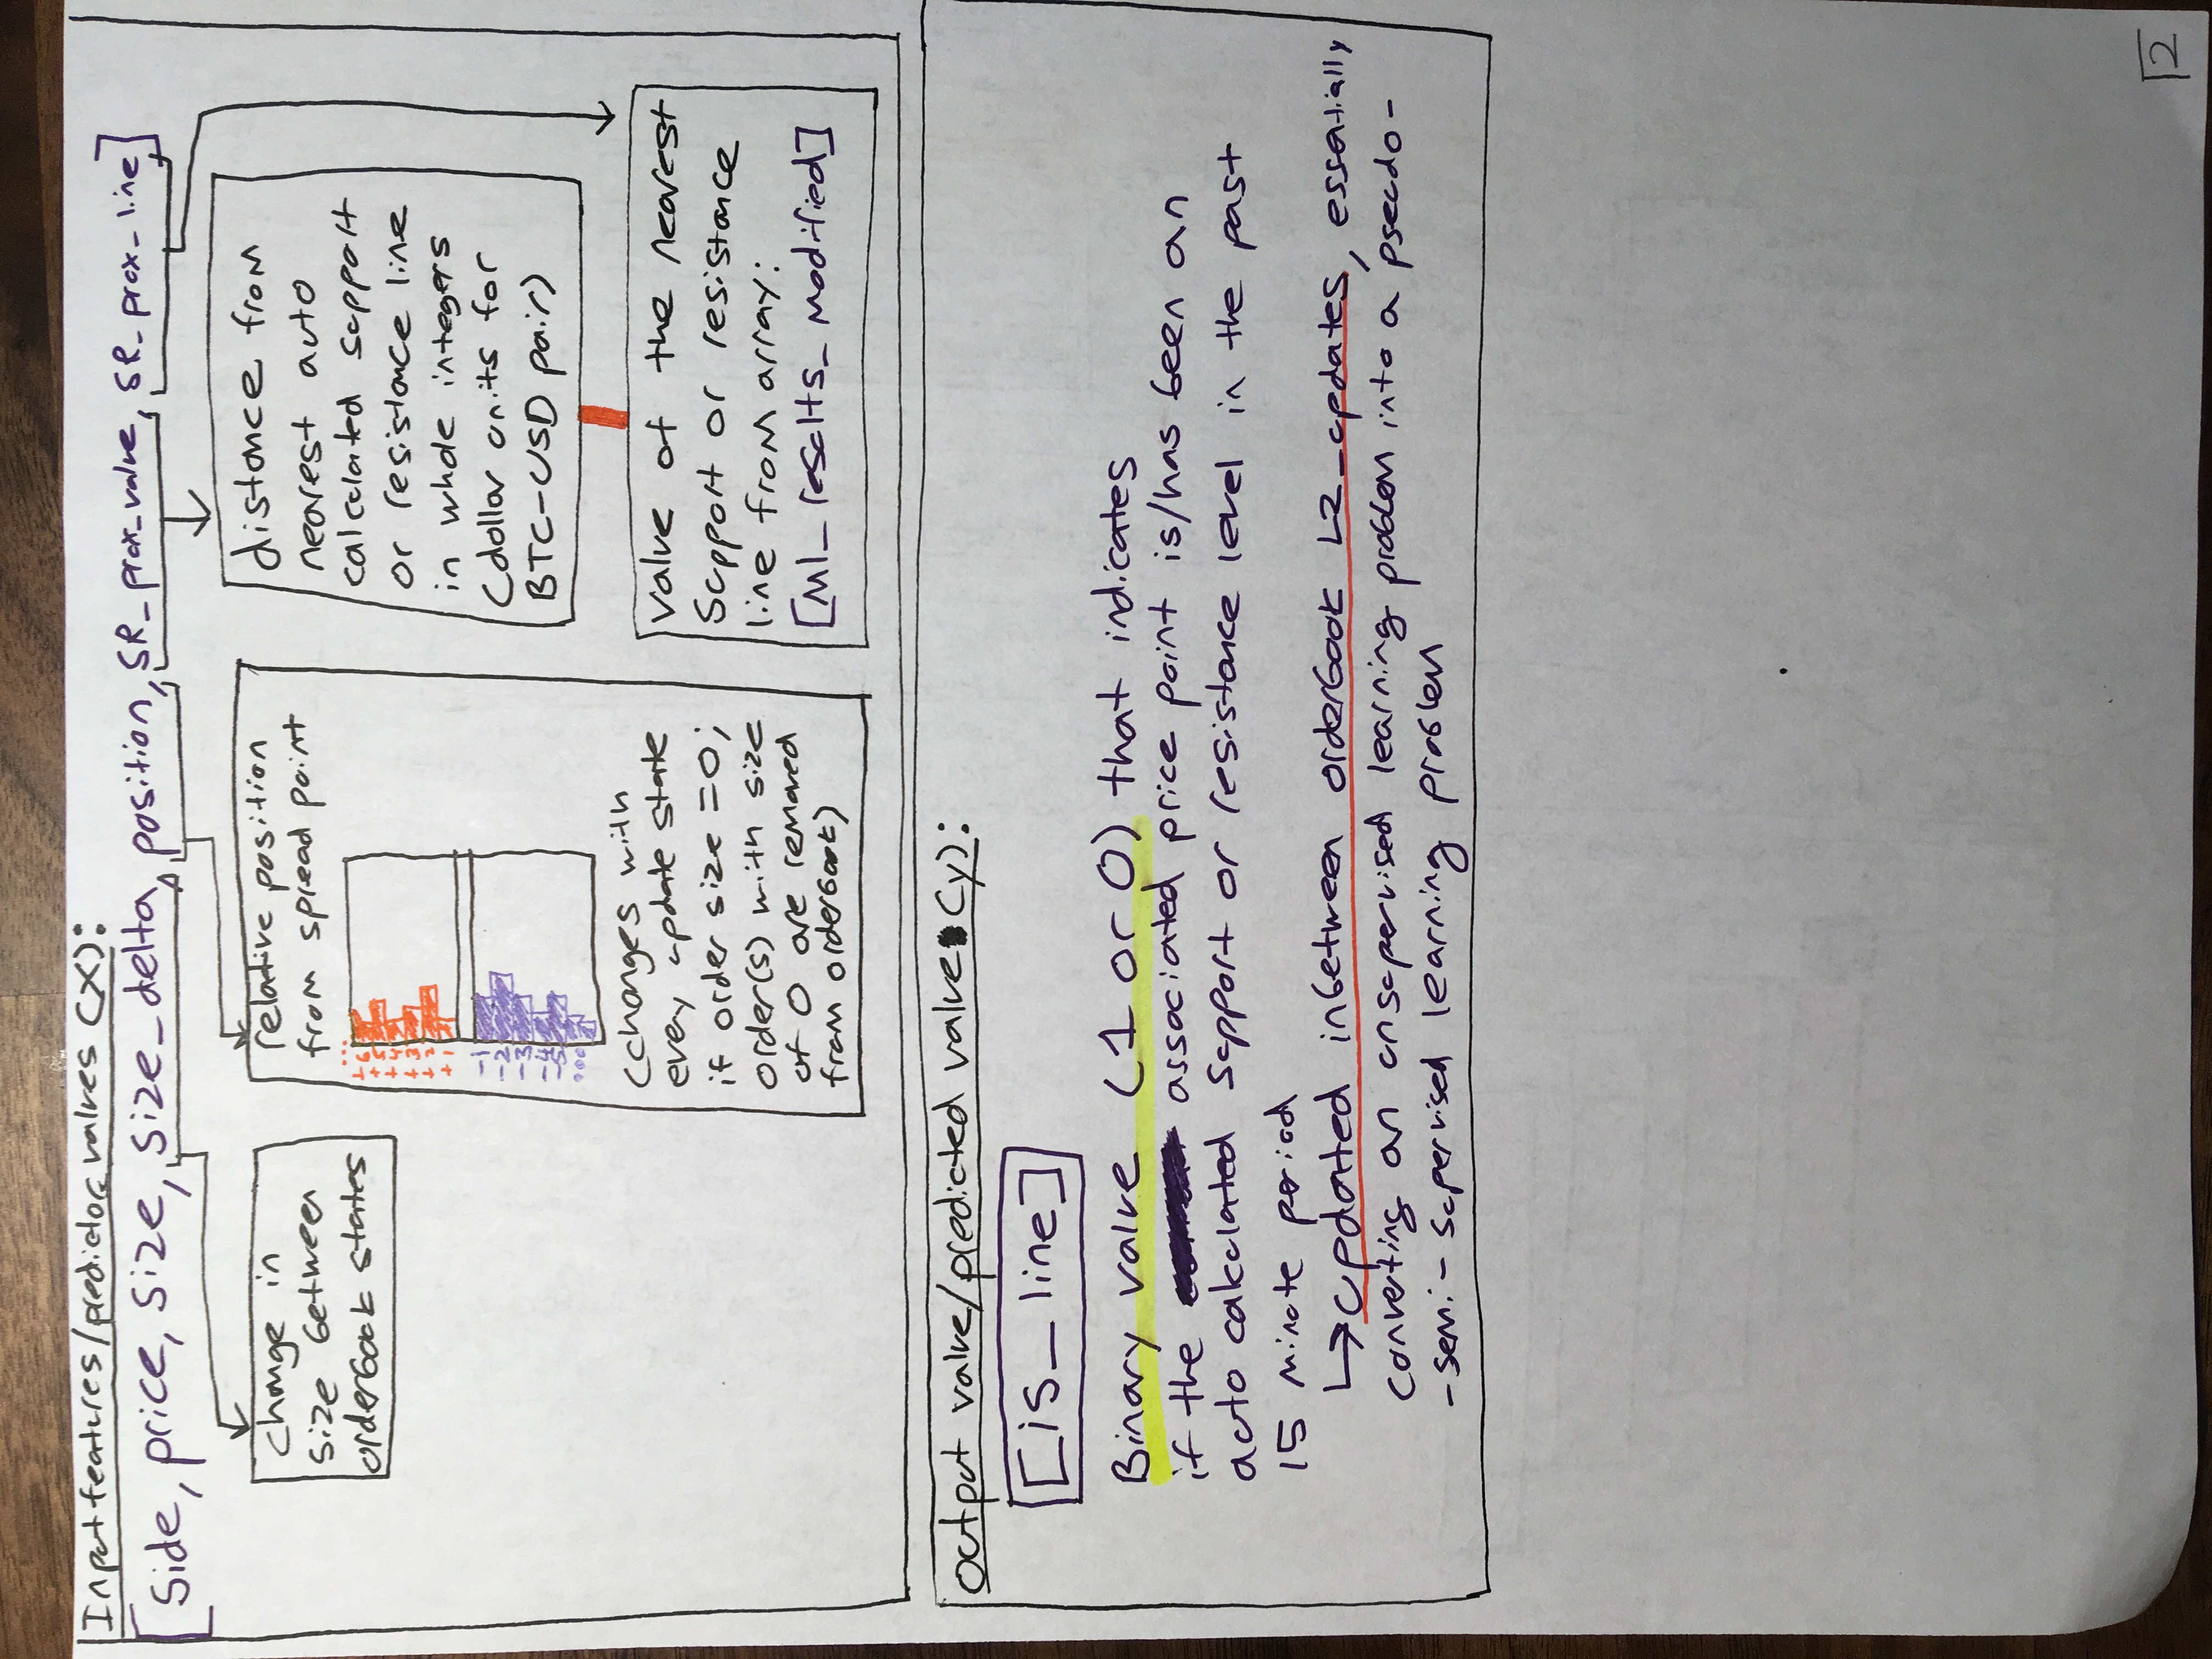 Input features/predictor values (X):
[Side, price, size, size_delta, position, SR_prox_value, SR_prox_line]
change in
size between
orderbook states
relative position
from spread point
...
+6
+5
+4
+3
+2
+1
-1
-2
-3
-4
-5
...
(changes with
every update state
if order size =0;
order(s) with size
of 0 are removed
from orderbook)
distance from
nearest auto
calculated support
or resistance line
in whole integers
(dollar units for
BTC-USD pair)
value of the nearest
Support or resistance
line from array:
[Ml_results_modified]
Output value/predicted value (y):
[is_line]
Binary value (1 or 0) that indicates
if the associated price point is/has been an
auto calculated support or resistance level in the past
15 minute period
↳ updated inbetween orderbook L2_updates, essentially
converting an unsupervised learning problem into a pseudo-
-semi-supervised learning problem
2